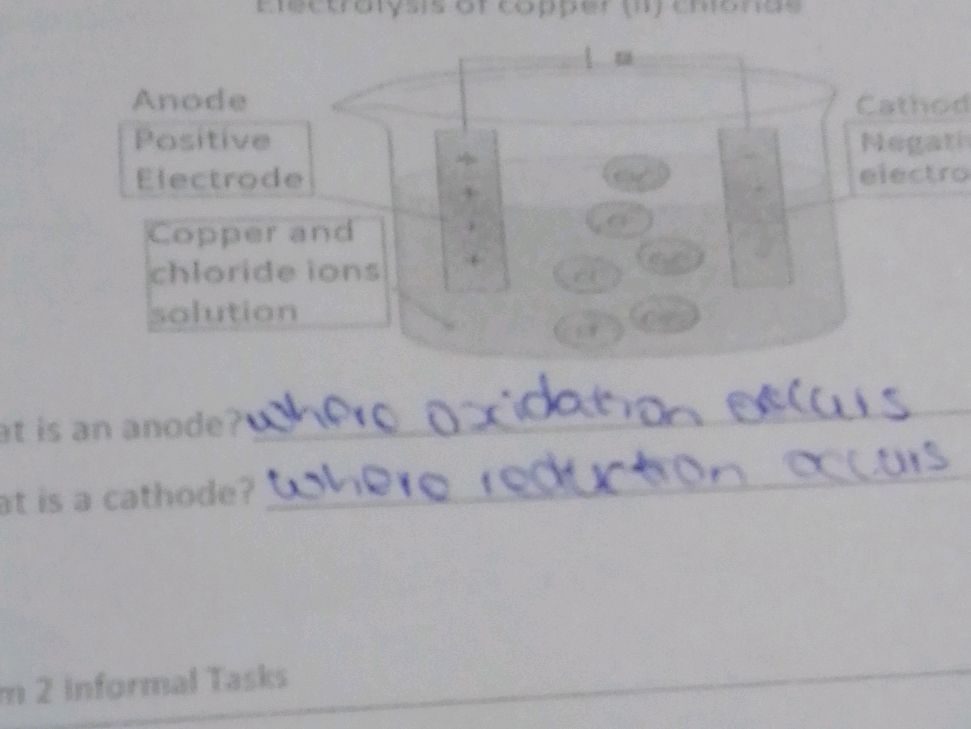 Electrolysis of copper (II) chloride
Anode
Positive
Electrode
Cathod
Negativ
electro
Copper and
chloride ions
solution
at is an anode? where oxidation occurs
at is a cathode? where reduction occurs
m 2 Informal Tasks